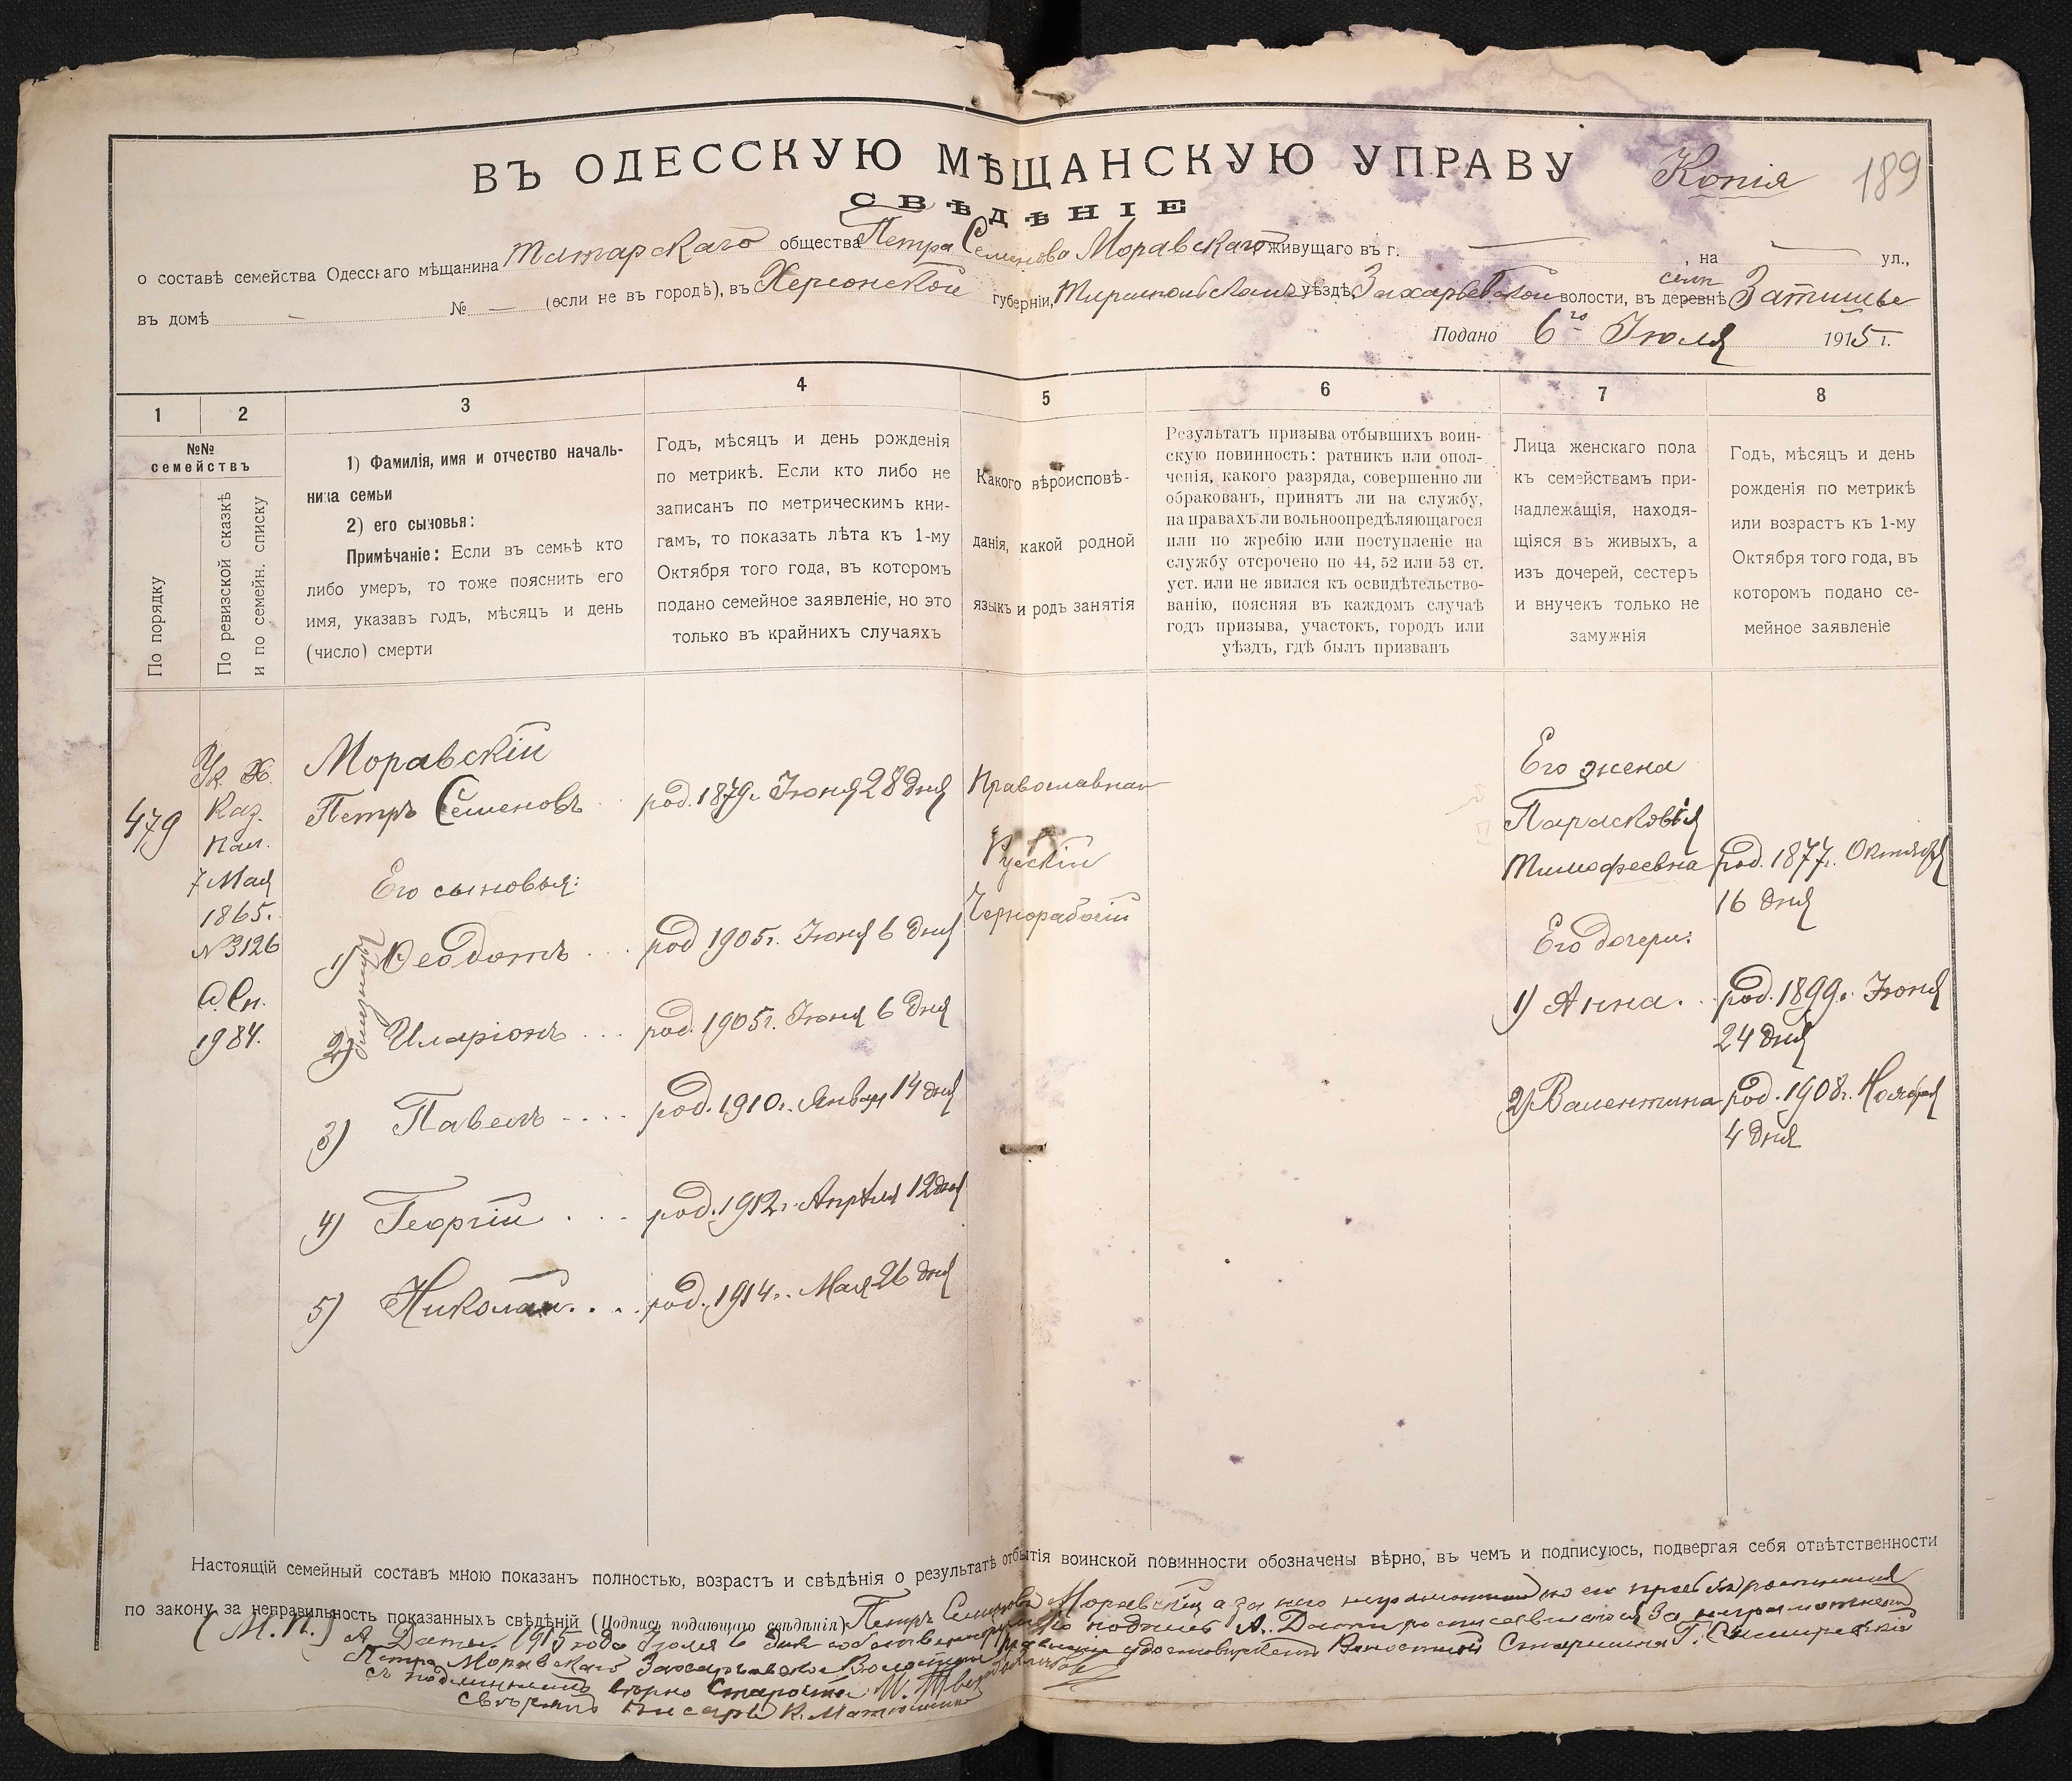 ВЪ ОДЕССКУЮ МѢЩАНСКУЮ УПРАВУ
Копія
189
СВѢДѢНІЕ
о составѣ семейства Одесскаго мѣщанина Татарскаго общества Петра Семенова Моравскаго живущаго въ г. — , на — ул.,
въ домѣ — № — (если не въ городѣ), въ Херсонской губерніи, Тираспольскомъ уѣздѣ, Захарьевской волости, въ деревнѣ селѣ Затишье
Подано 6го Іюля 1915 г.
1 2 3 4 5 6 7 8
№№ семействъ
По порядку
По ревизской сказкѣ
и по семейн. списку
1) Фамилія, имя и отчество началь-
ника семьи
2) его сыновья:
Примѣчаніе: Если въ семьѣ кто
либо умеръ, то тоже пояснить его
имя, указавъ годъ, мѣсяцъ и день
(число) смерти
Годъ, мѣсяцъ и день рожденія
по метрикѣ. Если кто либо не
записанъ по метрическимъ кни-
гамъ, то показать лѣта къ 1-му
Октября того года, въ которомъ
подано семейное заявленіе, но это
только въ крайнихъ случаяхъ
Какого вѣроисповѣ-
данія, какой родной
языкъ и родъ занятія
Результатъ призыва отбывшихъ воин-
скую повинность: ратникъ или опол-
ченія, какого разряда, совершенно ли
обракованъ, принятъ ли на службу,
на правахъ ли вольноопредѣляющагося
или по жребію или поступленіе на
службу отсрочено по 44, 52 или 53 ст.
уст. или не явился къ освидѣтельство-
ванію, поясняя въ каждомъ случаѣ
годъ призыва, участокъ, городъ или
уѣздъ, гдѣ былъ призванъ
Лица женскаго пола
къ семействамъ при-
надлежащія, находя-
щіяся въ живыхъ, а
изъ дочерей, сестеръ
и внучекъ только не
замужнія
Годъ, мѣсяцъ и день
рожденія по метрикѣ
или возрастъ къ 1-му
Октября того года, въ
которомъ подано се-
мейное заявленіе
479
Ук. Х.
Каз.
Пал.
7 Мая
1865.
№3126
Сп.
1984.
Моравскій
Петръ Семеновъ .. род. 1879 г. Іюня 28 дня
Его сыновья:
близнецы
1) Ѳеодотъ ... род 1905 г. Іюня 6 дня
2) Иларіонъ ... род. 1905 г. Іюня 6 дня
3) Павелъ .... род. 1910 г. Января 14 дня
4) Георгій ... род. 1912 г. Апрѣля 12 дня
5) Николай ... род. 1914 г. Мая 26 дня
Православная
Русскій
Чернорабочій
Его жена
Парасковія
Тимофеевна род. 1877 г. Октября
16 дня
Его дочери:
1) Анна .. род. 1899 г. Іюня
24 дня
2) Валентина род. 1908 г. Ноября
4 дня
Настоящій семейный составъ мною показанъ полностью, возрастъ и свѣдѣнія о результатѣ отбытія воинской повинности обозначены вѣрно, въ чемъ и подписуюсь, подвергая себя отвѣтственности
по закону за неправильность показанныхъ свѣдѣній (Подпись подающаго свѣдѣнія) Петръ Семеновъ Моравскій а за него неграмотнаго по его просьбѣ росписался
(М.П.) 1915 года Іюля 6 дня собственноручную подпись росписавшагося за неграмотнаго
Петра Моравскаго Захарьевское Волостное Правленіе удостовѣряетъ Волостной Старшина Г.
съ подлиннымъ вѣрно Староста М.
свѣрялъ Писарь К.